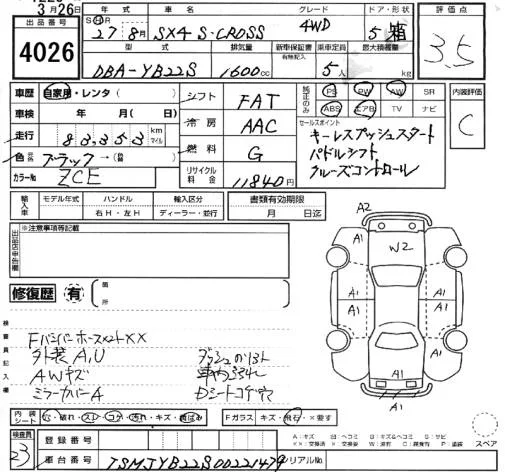 3月26日
出品番号 4026
年式 車名 グレード ドア・形状 評価点
27年 8月 SX4 S-CROSS 4WD 5 箱 3.5
型式 排気量 新車保証書 乗車定員 最大積載量
有無記入
DBA-YB22S 1600cc 5人 kg
車歴 自家用・レンタ( ) シフト FAT 純正のみ PS PW AW SR 内装評価
車検 年 月( 日) 冷房 AAC ABS エアB TV ナビ C
走行 83,353 km マイル セールスポイント
キーレスプッシュスタート
色 ブラック→ 燃料 G パドルシフト
カラーNo ZCE リサイクル料金 11840円 クルーズコントロール
輸入車 モデル年式 ハンドル 輸入区分 書類有効期限
右H・左H ディーラー・並行 月 日迄
※注意事項等記載
A2
A1 W2 A1
A1 A1 A1 A1
A1
A1
修復歴 有 箇所
検査員記入欄
FバンパーホースメントXX
外装A,U
AWキズ
ミラーカバーA
Dシートコゲ穴
内装シート ・破れ・スレ・コゲ・汚れ・キズ・ Fガラス キズ・飛石・×要す
A:キズ
スペア
検査員 23 登録番号
車台番号 TSMJYB22S00221479 シリアルNo